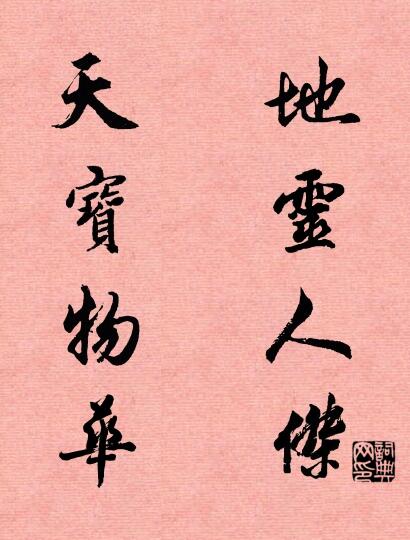 地靈人傑
天寶物華
詞典网印